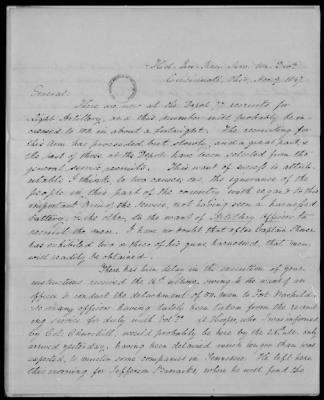 Cincinnati, Ohio, Nov. 9, 1847
General:
There are now at the Depot, 77 recruits for
Light Artillery, and this number will probably be in-
creased to 100 in about a fortnight. The recruiting for
this Arm has proceeded but slowly, and a great part, &
the best of those at the Depot have been selected from the
general service recruits. This want of success is attrib-
utable I think, to two causes, viz. the ignorance of the
people in this part of the country with regard to this
important Arm of the Service, not having seen a harnessed
battery, & the other, to the want of Artillery officers to
recruit the men. I have no doubt that after Captain
has exhibited two or three of his guns harnessed, that men
will readily be obtained.
There has been delay in the execution of your
instructions received the 16th ultimo, owing to the want of an
officer to conduct the detachment of 80 men to Fort
so many officers having lately been taken from the recruit-
ing service for duty with Vol's. Lt. Hooper, who I was informed
by Col. Churchill, would probably be here by the 26th ult. only
arrived yesterday, having been delayed much longer than was
expected, to muster some companies in Tennessee. He left here
this morning for Jefferson Barracks, where he will find the